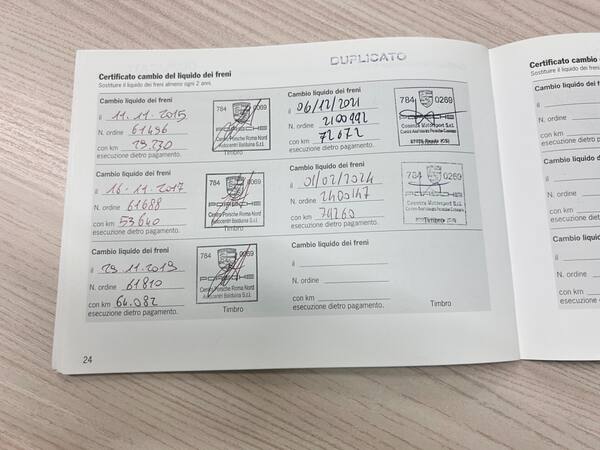 DUPLICATO
Certificato cambio del liquido dei freni
Sostituire il liquido dei freni almeno ogni 2 anni.
Cambio liquido dei freni
il 11.11.2015
N. ordine 61496
con km 29.730
esecuzione dietro pagamento.
784 0069
PORSCHE
Centro Porsche Roma Nord
Autocentri Balduina S.r.l.
Timbro
Cambio liquido dei freni
il 16.11.2017
N. ordine 61688
con km 53640
esecuzione dietro pagamento.
784 0069
PORSCHE
Centro Porsche Roma Nord
Autocentri Balduina S.r.l.
Timbro
Cambio liquido dei freni
il 29.11.2019
N. ordine 61810
con km 64.082
esecuzione dietro pagamento.
784 0069
PORSCHE
Centro Porsche Roma Nord
Autocentri Balduina S.r.l.
Timbro
Cambio liquido dei freni
il 06/12/2021
N. ordine 2100992
con km 72672
esecuzione dietro pagamento.
784 0269
Cosenza Motorsport S.r.l.
Centro Assistenza Porsche Cosenza
87036 Rende (CS)
Cambio liquido dei freni
il 01/02/2024
N. ordine 2400147
con km 74260
esecuzione dietro pagamento.
784 0269
Cosenza Motorsport S.r.l.
Centro Assistenza Porsche Cosenza
Timbro
Cambio liquido dei freni
il
N. ordine
con km
esecuzione dietro pagamento.
Timbro
24
Certificato cambio
Sostituire il liquido dei freni
Cambio liquido dei freni
il
N. ordine
con km
esecuzione dietro
Cambio liquido dei
il
N. ordine
con km
esecuzione dietro
Cambio liquido
il
N. ordine
con km
esecuzione